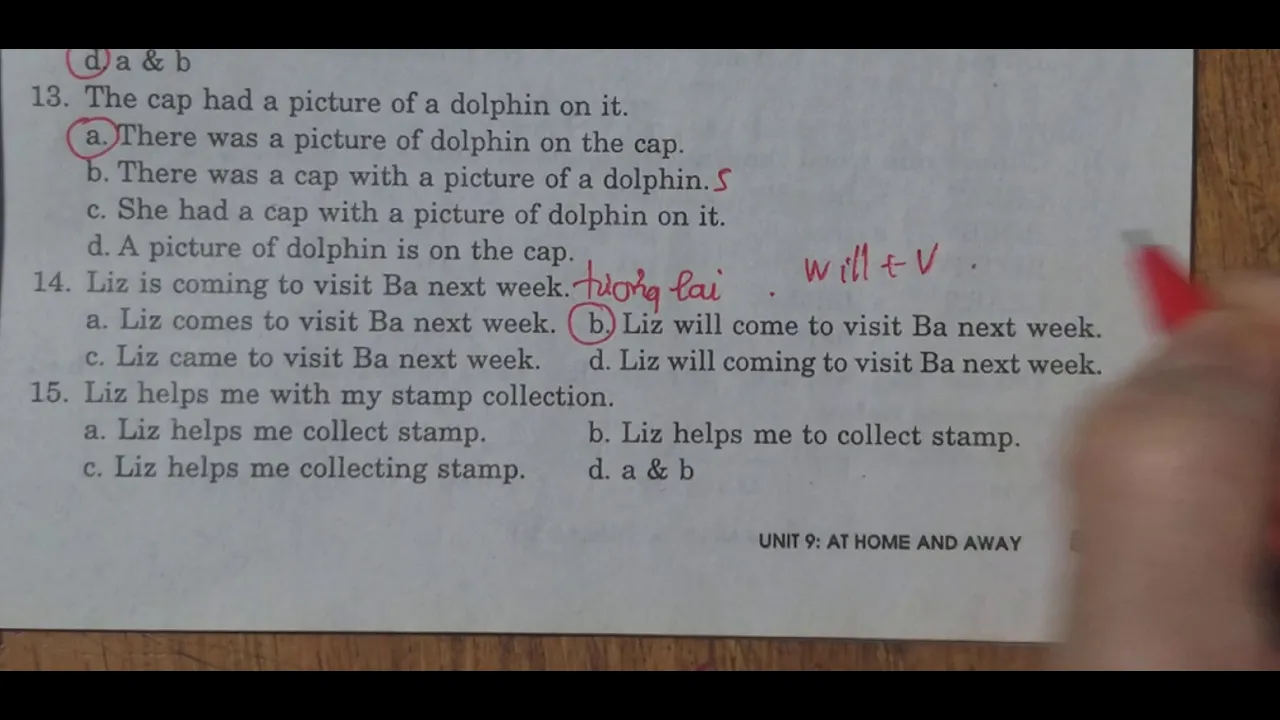 d. a & b
13. The cap had a picture of a dolphin on it.
a. There was a picture of dolphin on the cap.
b. There was a cap with a picture of a dolphin. S
c. She had a cap with a picture of dolphin on it.
d. A picture of dolphin is on the cap.
will + V
14. Liz is coming to visit Ba next week. tương lai
a. Liz comes to visit Ba next week. b. Liz will come to visit Ba next week.
c. Liz came to visit Ba next week. d. Liz will coming to visit Ba next week.
15. Liz helps me with my stamp collection.
a. Liz helps me collect stamp. b. Liz helps me to collect stamp.
c. Liz helps me collecting stamp. d. a & b
UNIT 9: AT HOME AND AWAY